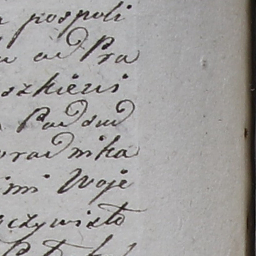 pospoli
od Pra
szkieni
Pod sud
oradnika
imi Woje
czywisto